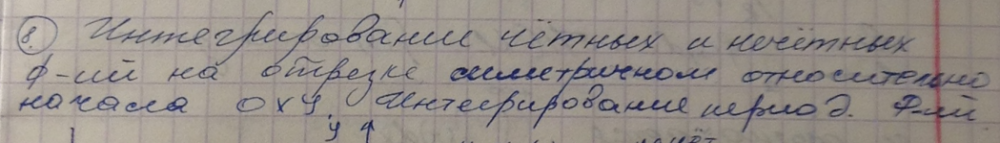 8. Интегрировании чётных и нечётных
ф-ий на отрезке симетричном относительно
начала OXY. Интегрирование период. Ф-ий
y